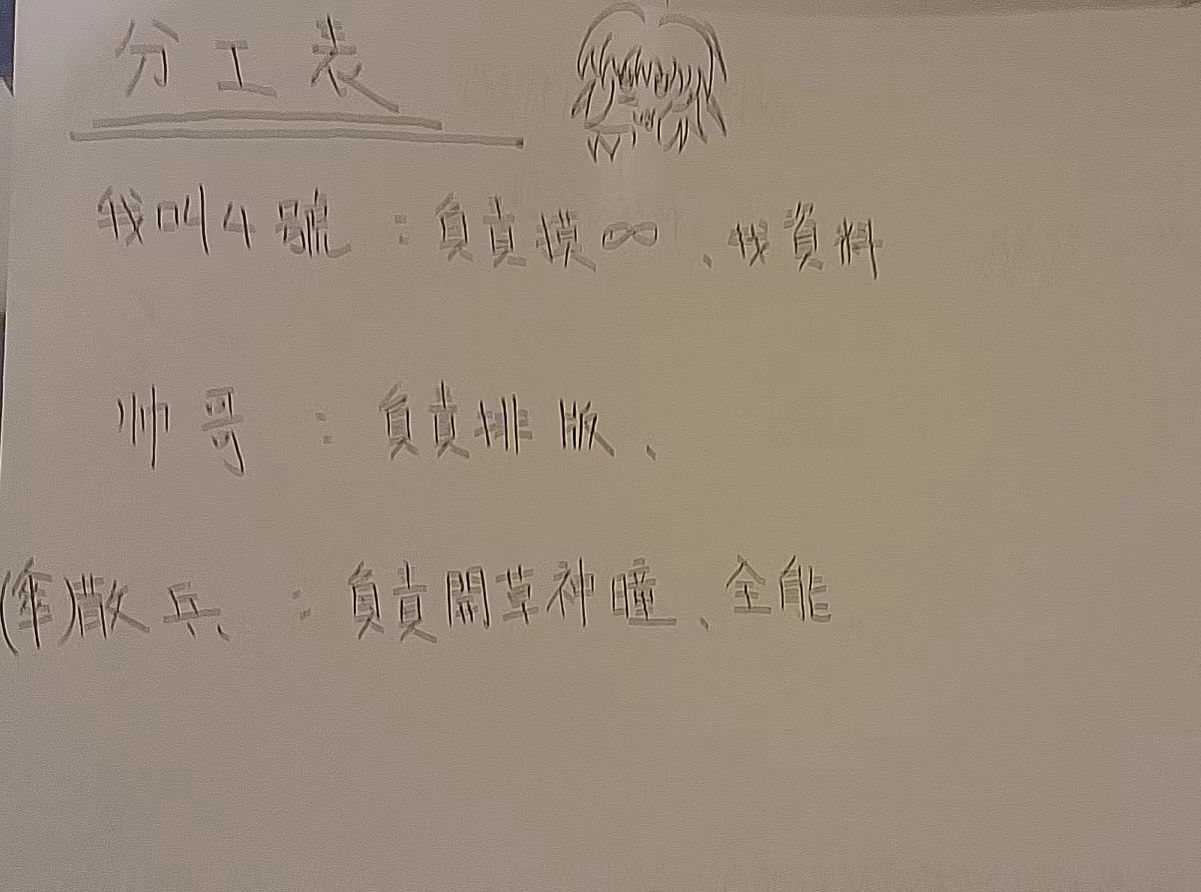 分工表
我叫4號：負責摸∞、找資料
帅哥：負責排版、
(傘)散兵：負責開草神瞳、全能